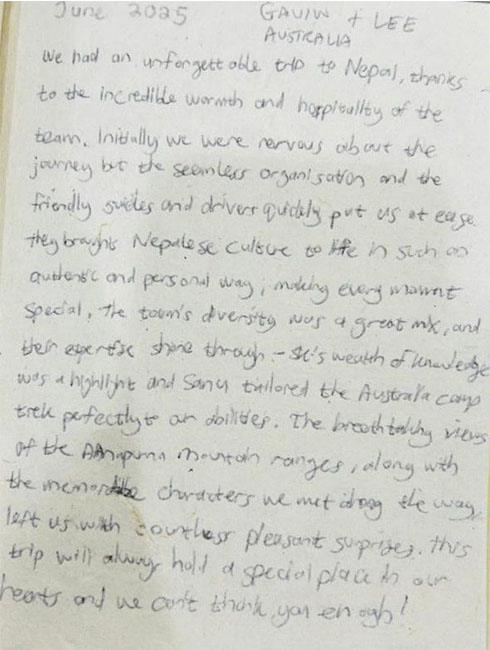 June 2025
GAVIN + LEE
AUSTRALIA
We had an unforgettable trip to Nepal, thanks
to the incredible warmth and hospitality of the
team. Initially we were nervous about the
journey but the seamless organisation and the
friendly guides and drivers quickly put us at ease.
they brought Nepalese culture to life in such an
authentic and personal way, making every moment
special, the town's diversity was a great mix, and
their expertise shone through - SK's wealth of knowledge
was a highlight and Sanu tailored the Australia camp
trek perfectly to our abilities. The breathtaking views
of the Annapurna mountain ranges, along with
the memorable characters we met along the way,
left us with countless pleasant surprises. This
trip will always hold a special place in our
hearts and we can't thank you enough!